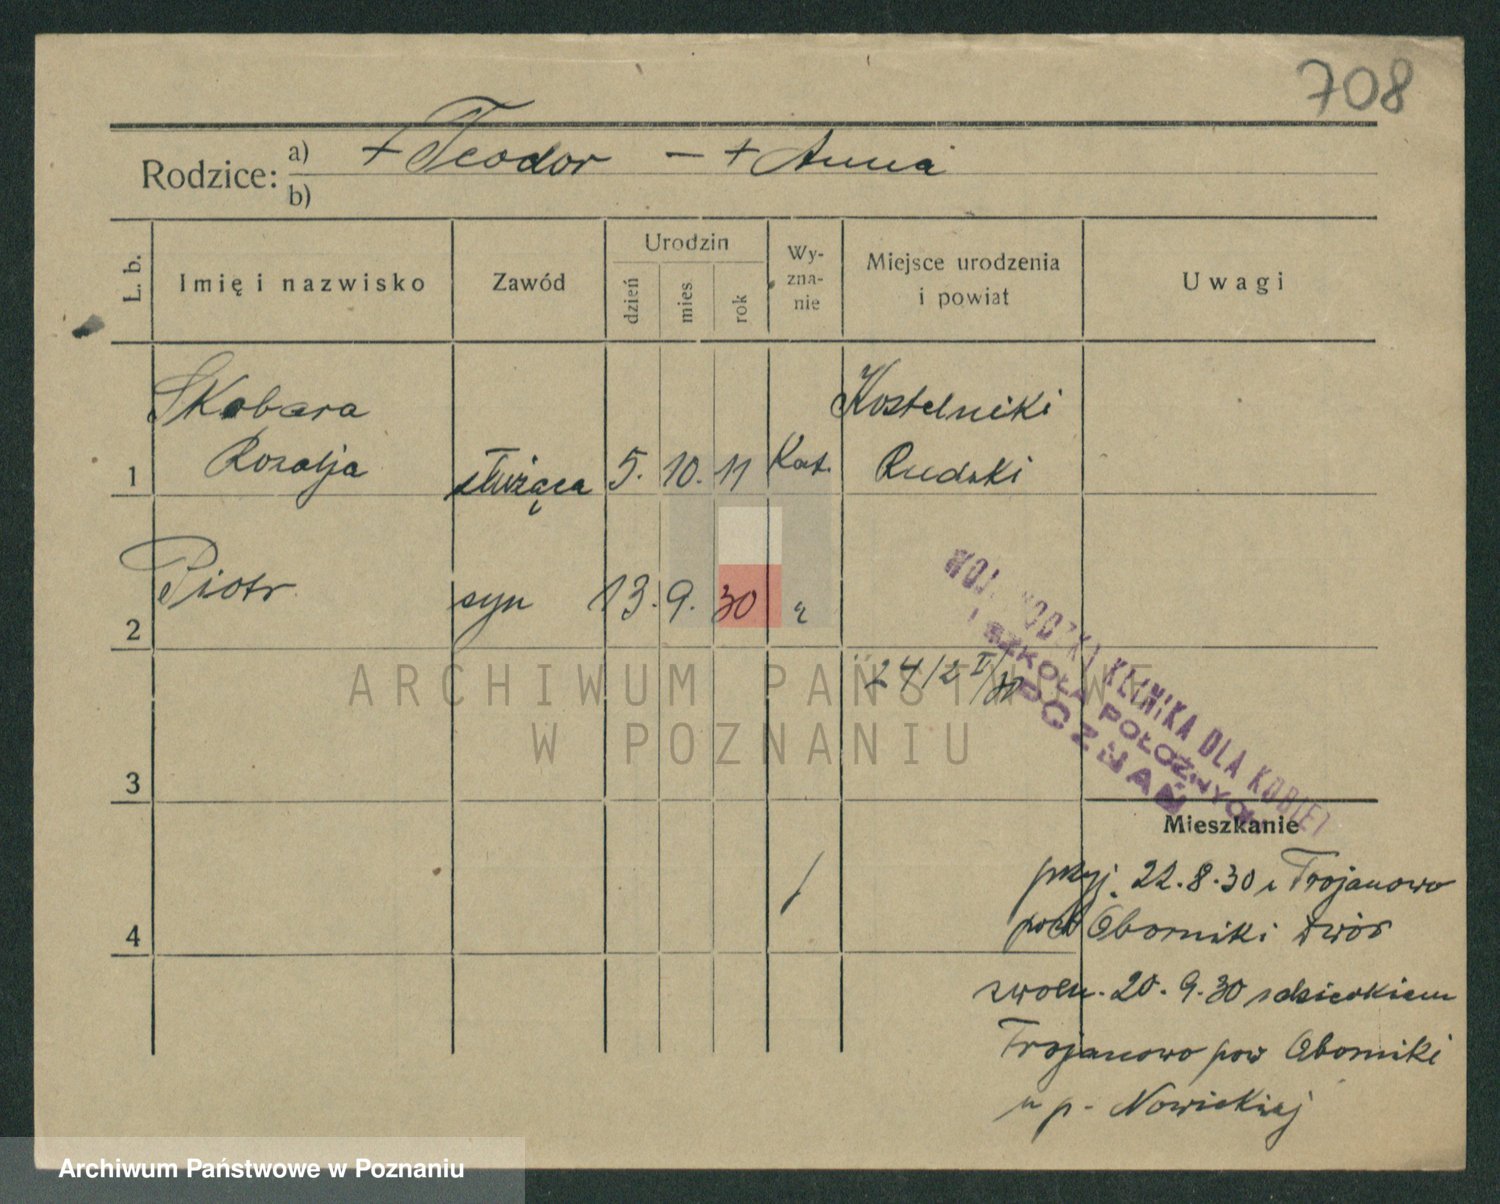 708
Rodzice: a) + Teodor – + Anna
b)
L. b.
Imię i nazwisko
Zawód
Urodzin
dzień
mies
rok
Wy-
zna-
nie
Miejsce urodzenia
i powiat
Uwagi
Skobara
Rozalja
1
służąca
5. 10. 11
Kat.
Kostelniki
Rudzki
2
Piotr
syn
13. 9. 30
24/2
WOJEWÓDZKA KLINIKA DLA KOBIET
I SZKOŁA POŁOŻNYCH
POZNAŃ
3
4
Mieszkanie
przyj. 22.8.30 z Trojanowo
Oborniki dwór
zwoln. 20. 9. 30 z dzieckiem
Trojanowo pow Oborniki
u p. Nowickiej
ARCHIWUM PAŃSTWOWE
W POZNANIU
Archiwum Państwowe w Poznaniu